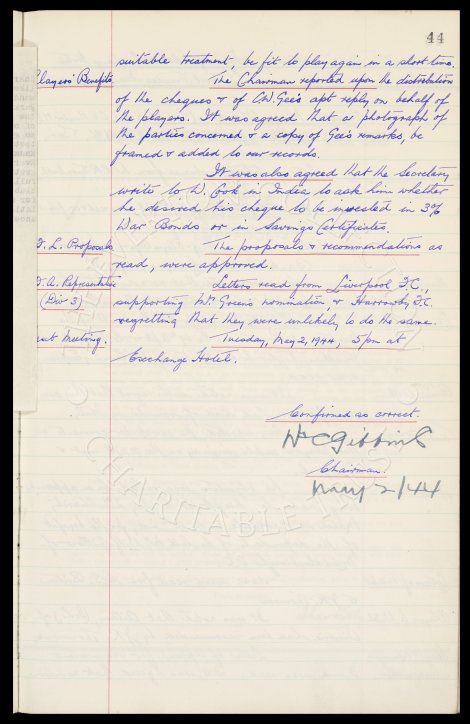 44
suitable treatment, be fit to play again in a short time.
Players' Benefits The Chairman reported upon the distribution
of the cheques & of C.W. Gee's apt reply on behalf of
the players. It was agreed that a photograph of
the parties concerned & a copy of Gee's remarks, be
framed & added to our records.
It was also agreed that the Secretary
write to W. Cook in India to ask him whether
he desired his cheque to be invested in 3%
War Bonds or in Savings Certificates.
F. L. Proposals The proposals & recommendations as
read, were approved.
F. A. Representative Letters read from Liverpool F.C.,
(Div 3) supporting Mr Green's nomination, & Burnley F.C.
regretting that they were unlikely to do the same.
Next Meeting. Tuesday, May 2, 1944, 5pm at
Exchange Hotel.
Confirmed as correct.
Wm C Gibbins
Chairman.
May 2/44
CHARITABLE